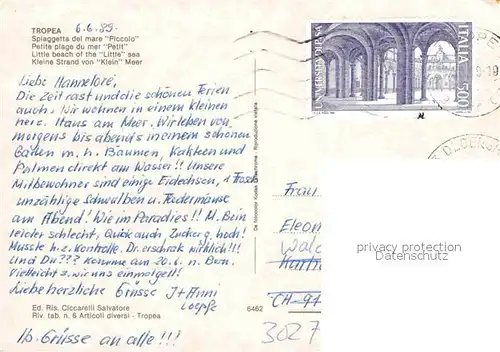 TROPEA 6.6.89.
Spiaggetta del mare "Piccolo"
Petite plage du mer "Petit"
Little beach of the "Little" sea
Kleine Strand von "Klein" Meer
Liebe Hannelore,
Die Zeit rast und die schönen Ferien
auch. Wir wohnen in einem kleinen
Haus am Meer. Wir leben von
morgens bis abends in einem schönen
Garten m. h. Bäumen, Kakteen und
Palmen direkt am Wasser!! Unsere
Mitbewohner sind einige Eidechsen,
unzählige Schwalben u. Fledermäuse
am Abend! Wie im Paradies!! M. Bein
leider schlecht, Quick auch, Zucker g. hoch!
Musste h. z. Kontrolle. Dr. erschrak wirklich!!!
Und Du??? Komme am 20.6. n. Bern.
Vielleicht s. wir uns einmal
Liebe herzliche Grüsse J + Anni
Loepfe
Ed. Ris. Ciccarelli Salvatore
Riv. tab. n. 6 Articoli diversi - Tropea
6462
lb. Grüsse an alle!!!
UNIVERSITÀ DI PISA
ITALIA 500
Frau
Eleon
CH-94
3027
privacy protection
Datenschutz